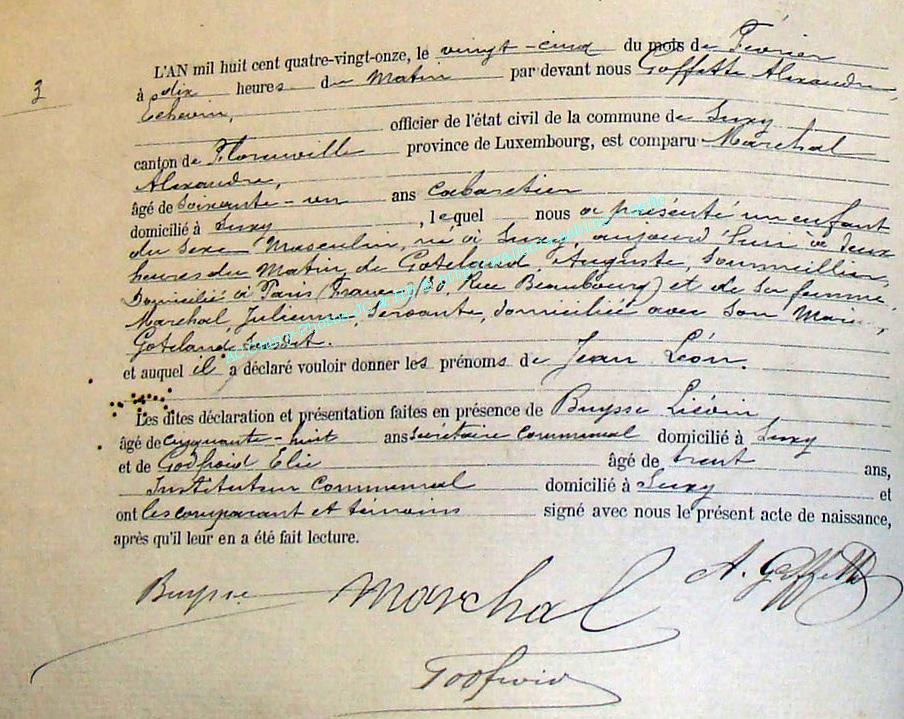 L'AN mil huit cent quatre-vingt-onze, le vingt-cinq du mois de Février
3
à dix heures du Matin par devant nous Goffette Alexandre,
Echevin,
officier de l'état civil de la commune de Suxy
canton de Florenville province de Luxembourg, est comparu Marchal
Alexandre,
âgé de Soixante-un ans Cabaretier
domicilié à Suxy, lequel nous a présenté un enfant
du Sexe Masculin, né à Suxy, aujourd'hui à deux
heures du Matin, de Goteland, Auguste, Sommeillier,
Domicilié à Paris (France, Rue Beaubourg) et de Sa femme
Marchal, Julienne, Servante, domiciliée avec Son Mari,
Goteland, susdit.
et auquel il a déclaré vouloir donner les prénoms de Jean Léon.
Les dites déclaration et présentation faites en présence de Buysse Liévin
âgé de cinquante-huit ans Secrétaire Communal domicilié à Suxy
et de Godfroid Elie âgé de trent ans,
Instituteur Communal domicilié à Suxy et
ont les comparant et temoins signé avec nous le présent acte de naissance,
après qu'il leur en a été fait lecture.
Buysse Marchal A. Goffette
Godfroid